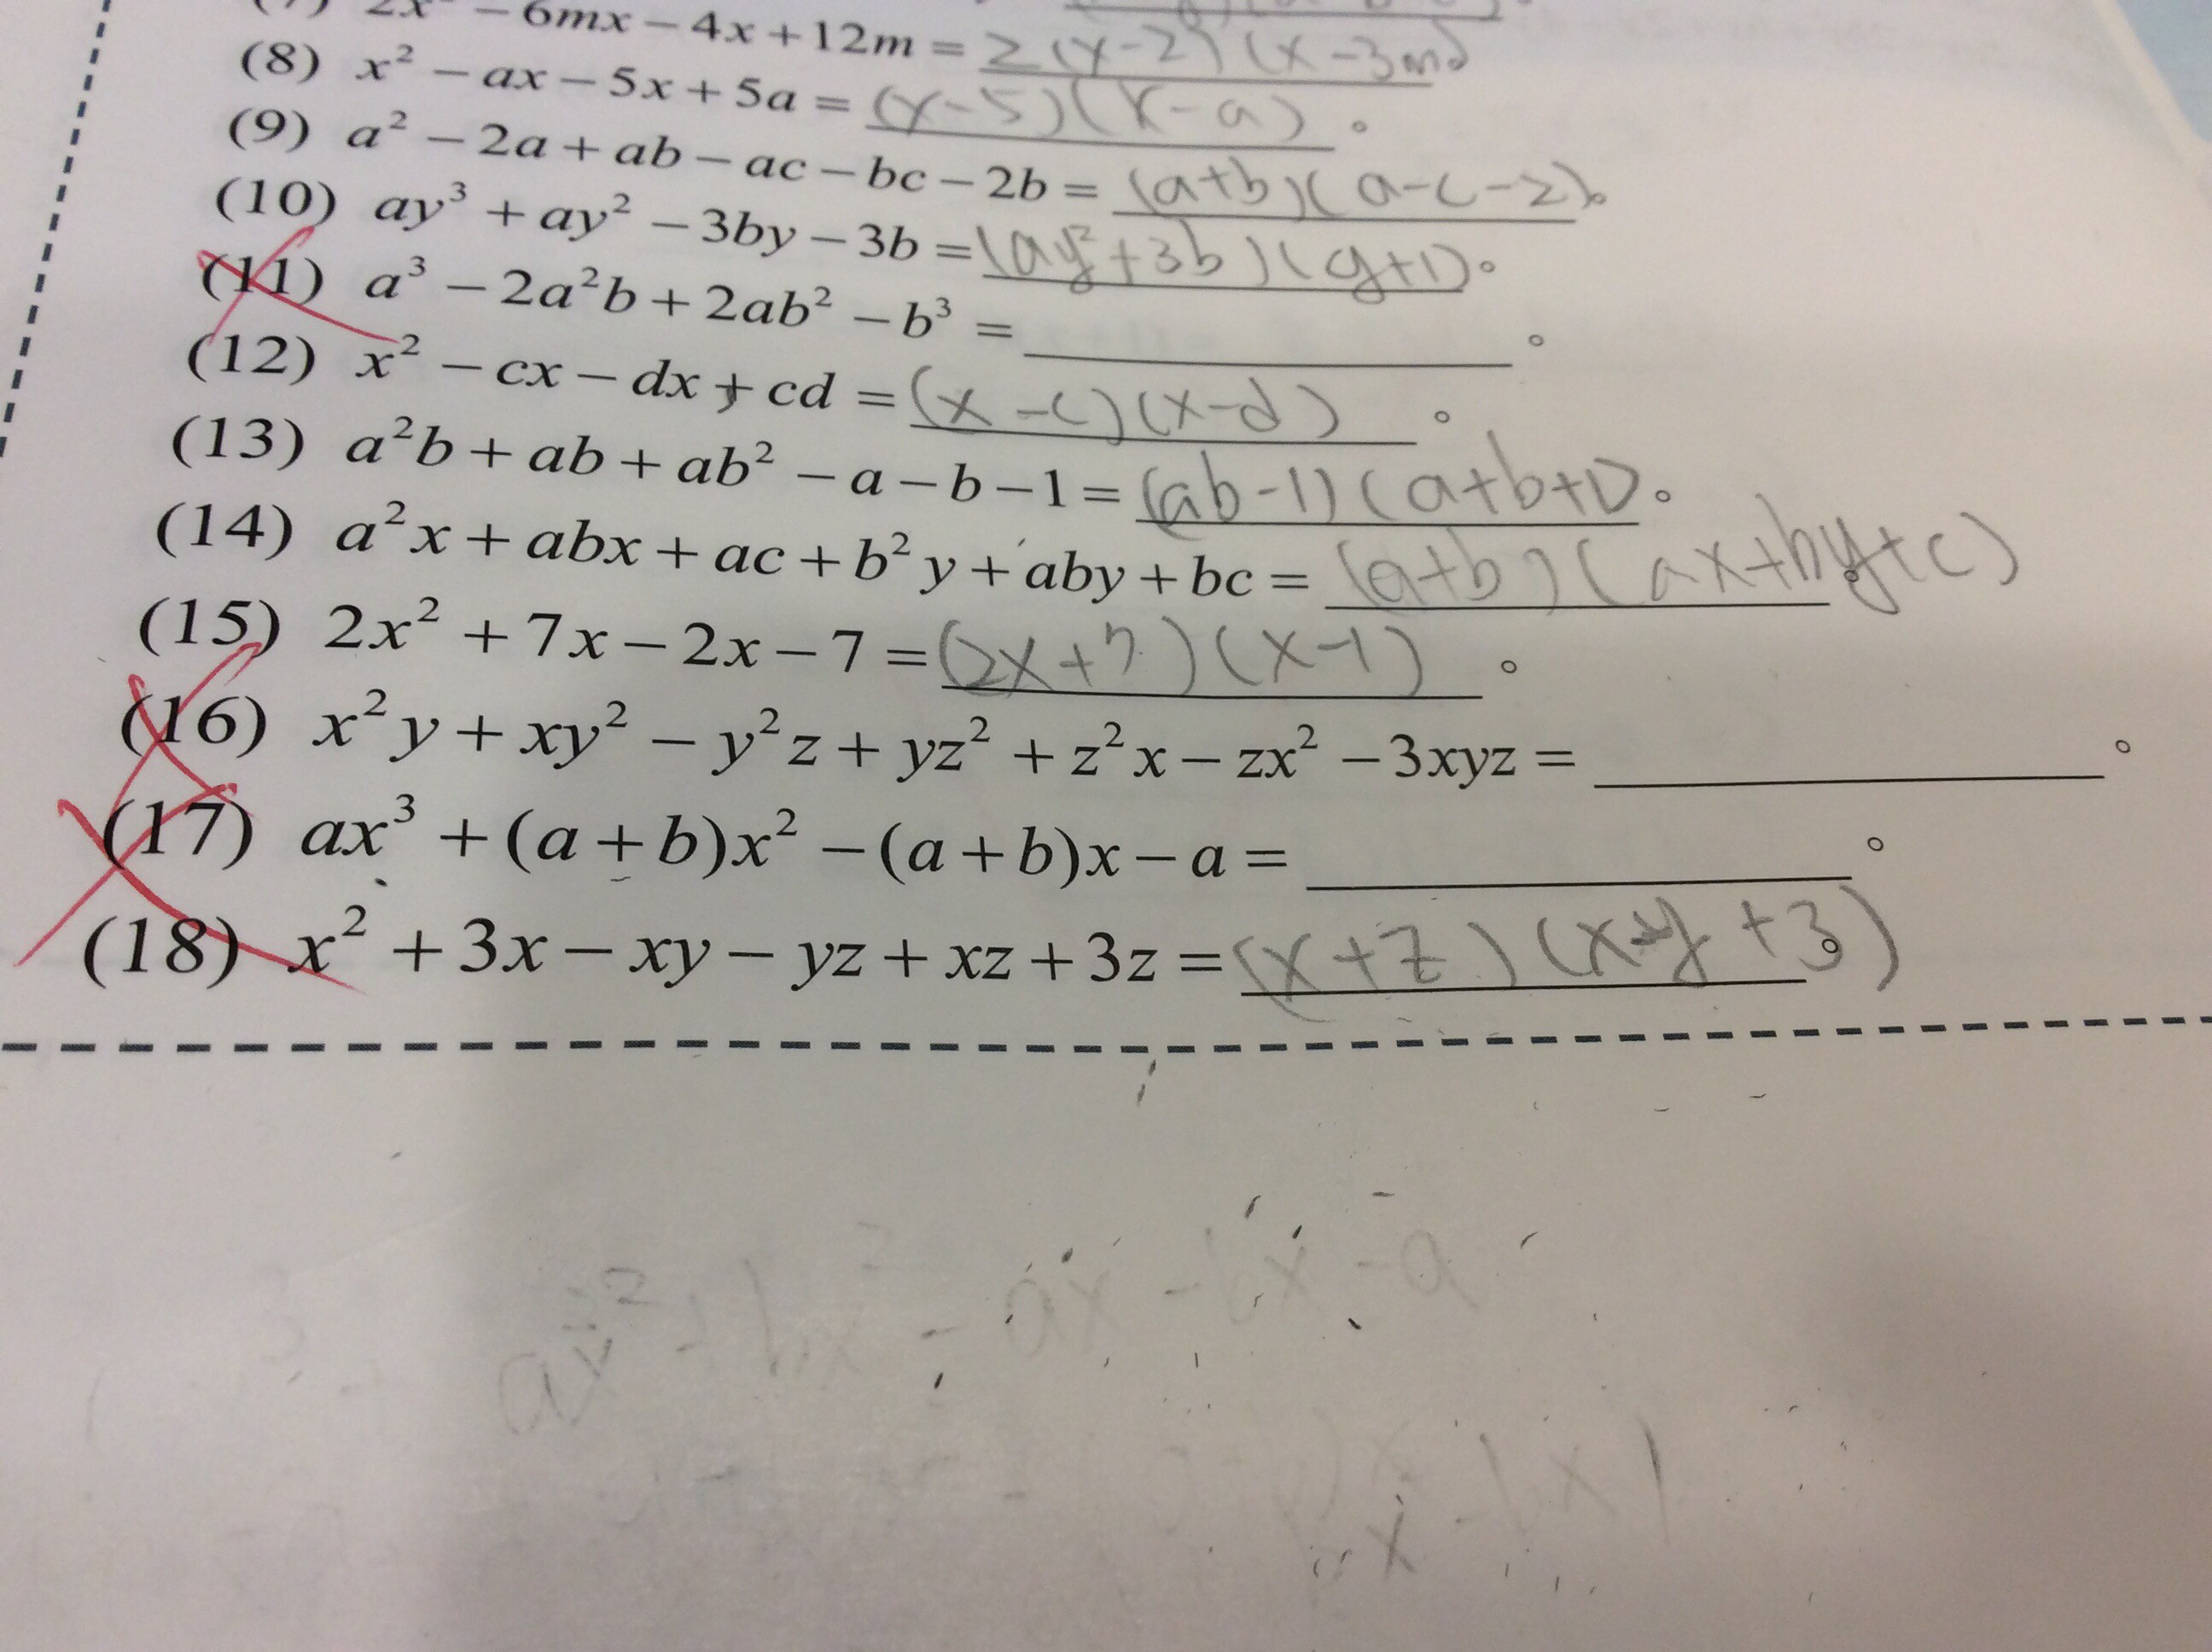 (7) 2x² − 6mx − 4x + 12m = 2(x-2)(x-3m)
(8) x² − ax − 5x + 5a = (x-5)(x-a)。
(9) a² − 2a + ab − ac − bc − 2b = (a+b)(a-c-2)。
(10) ay³ + ay² − 3by − 3b = (ay²+3b)(y+1)。
(11) a³ − 2a²b + 2ab² − b³ = 。
(12) x² − cx − dx + cd = (x-c)(x-d)。
(13) a²b + ab + ab² − a − b − 1 = (ab-1)(a+b+1)。
(14) a²x + abx + ac + b²y + aby + bc = (a+b)(ax+by+c)。
(15) 2x² + 7x − 2x − 7 = (2x+7)(x-1)。
(16) x²y + xy² − y²z + yz² + z²x − zx² − 3xyz = 。
(17) ax³ + (a + b)x² − (a + b)x − a = 。
(18) x² + 3x − xy − yz + xz + 3z = (x+z)(x-y+3)。